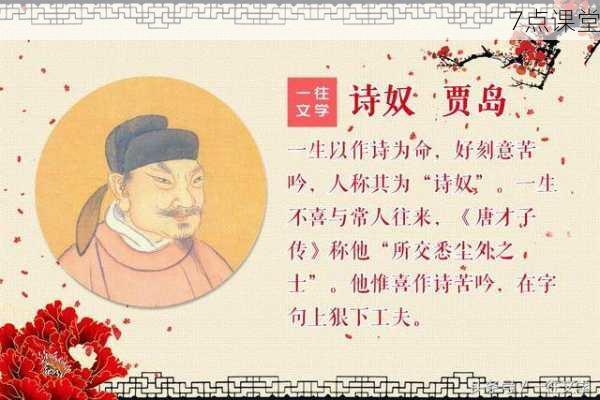 7点课堂
一往
文学
诗奴 贾岛
一生以作诗为命，好刻意苦
吟，人称其为“诗奴”。一生
不喜与常人往来，《唐才子
传》称他“所交悉尘外之
士”。他惟喜作诗苦吟，在字
句上狠下工夫。